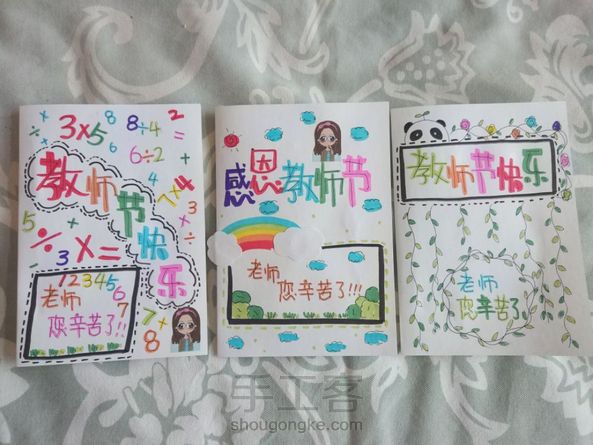 3×5
8
8÷4
2
=
8
6÷2
4
7×4
教师节快乐
5
3
÷
×=
2
3
8
12345
6
7
老师
您辛苦了!!
7+8
感恩教师节
老师
您辛苦了!!!
教师节快乐
老师
您辛苦了
手工客
shougongke.com